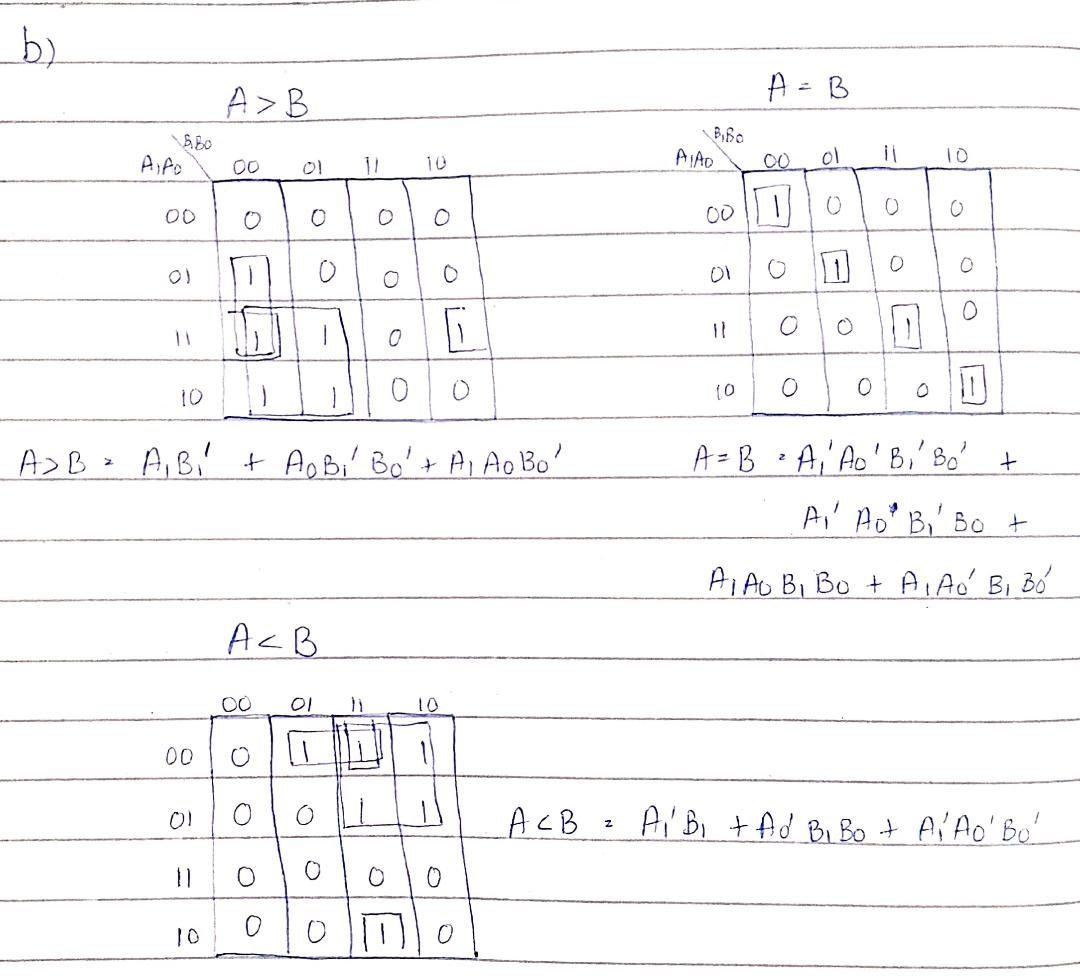 b)
A > B
A = B
B₁B₀
A₁A₀ 00 01 11 10
00 0 0 0 0
01 1 0 0 0
11 1 1 0 1
10 1 1 0 0
B₁B₀
A₁A₀ 00 01 11 10
00 1 0 0 0
01 0 1 0 0
11 0 0 1 0
10 0 0 0 1
A>B = A₁B₁' + A₀B₁'B₀' + A₁A₀B₀'
A=B = A₁'A₀'B₁'B₀' +
A₁' A₀ B₁'B₀ +
A₁A₀B₁B₀ + A₁A₀'B₁B₀'
A<B
00 01 11 10
00 0 1 1 1
01 0 0 1 1
11 0 0 0 0
10 0 0 1 0
A<B = A₁'B₁ + A₀'B₁B₀ + A₁'A₀'B₀'